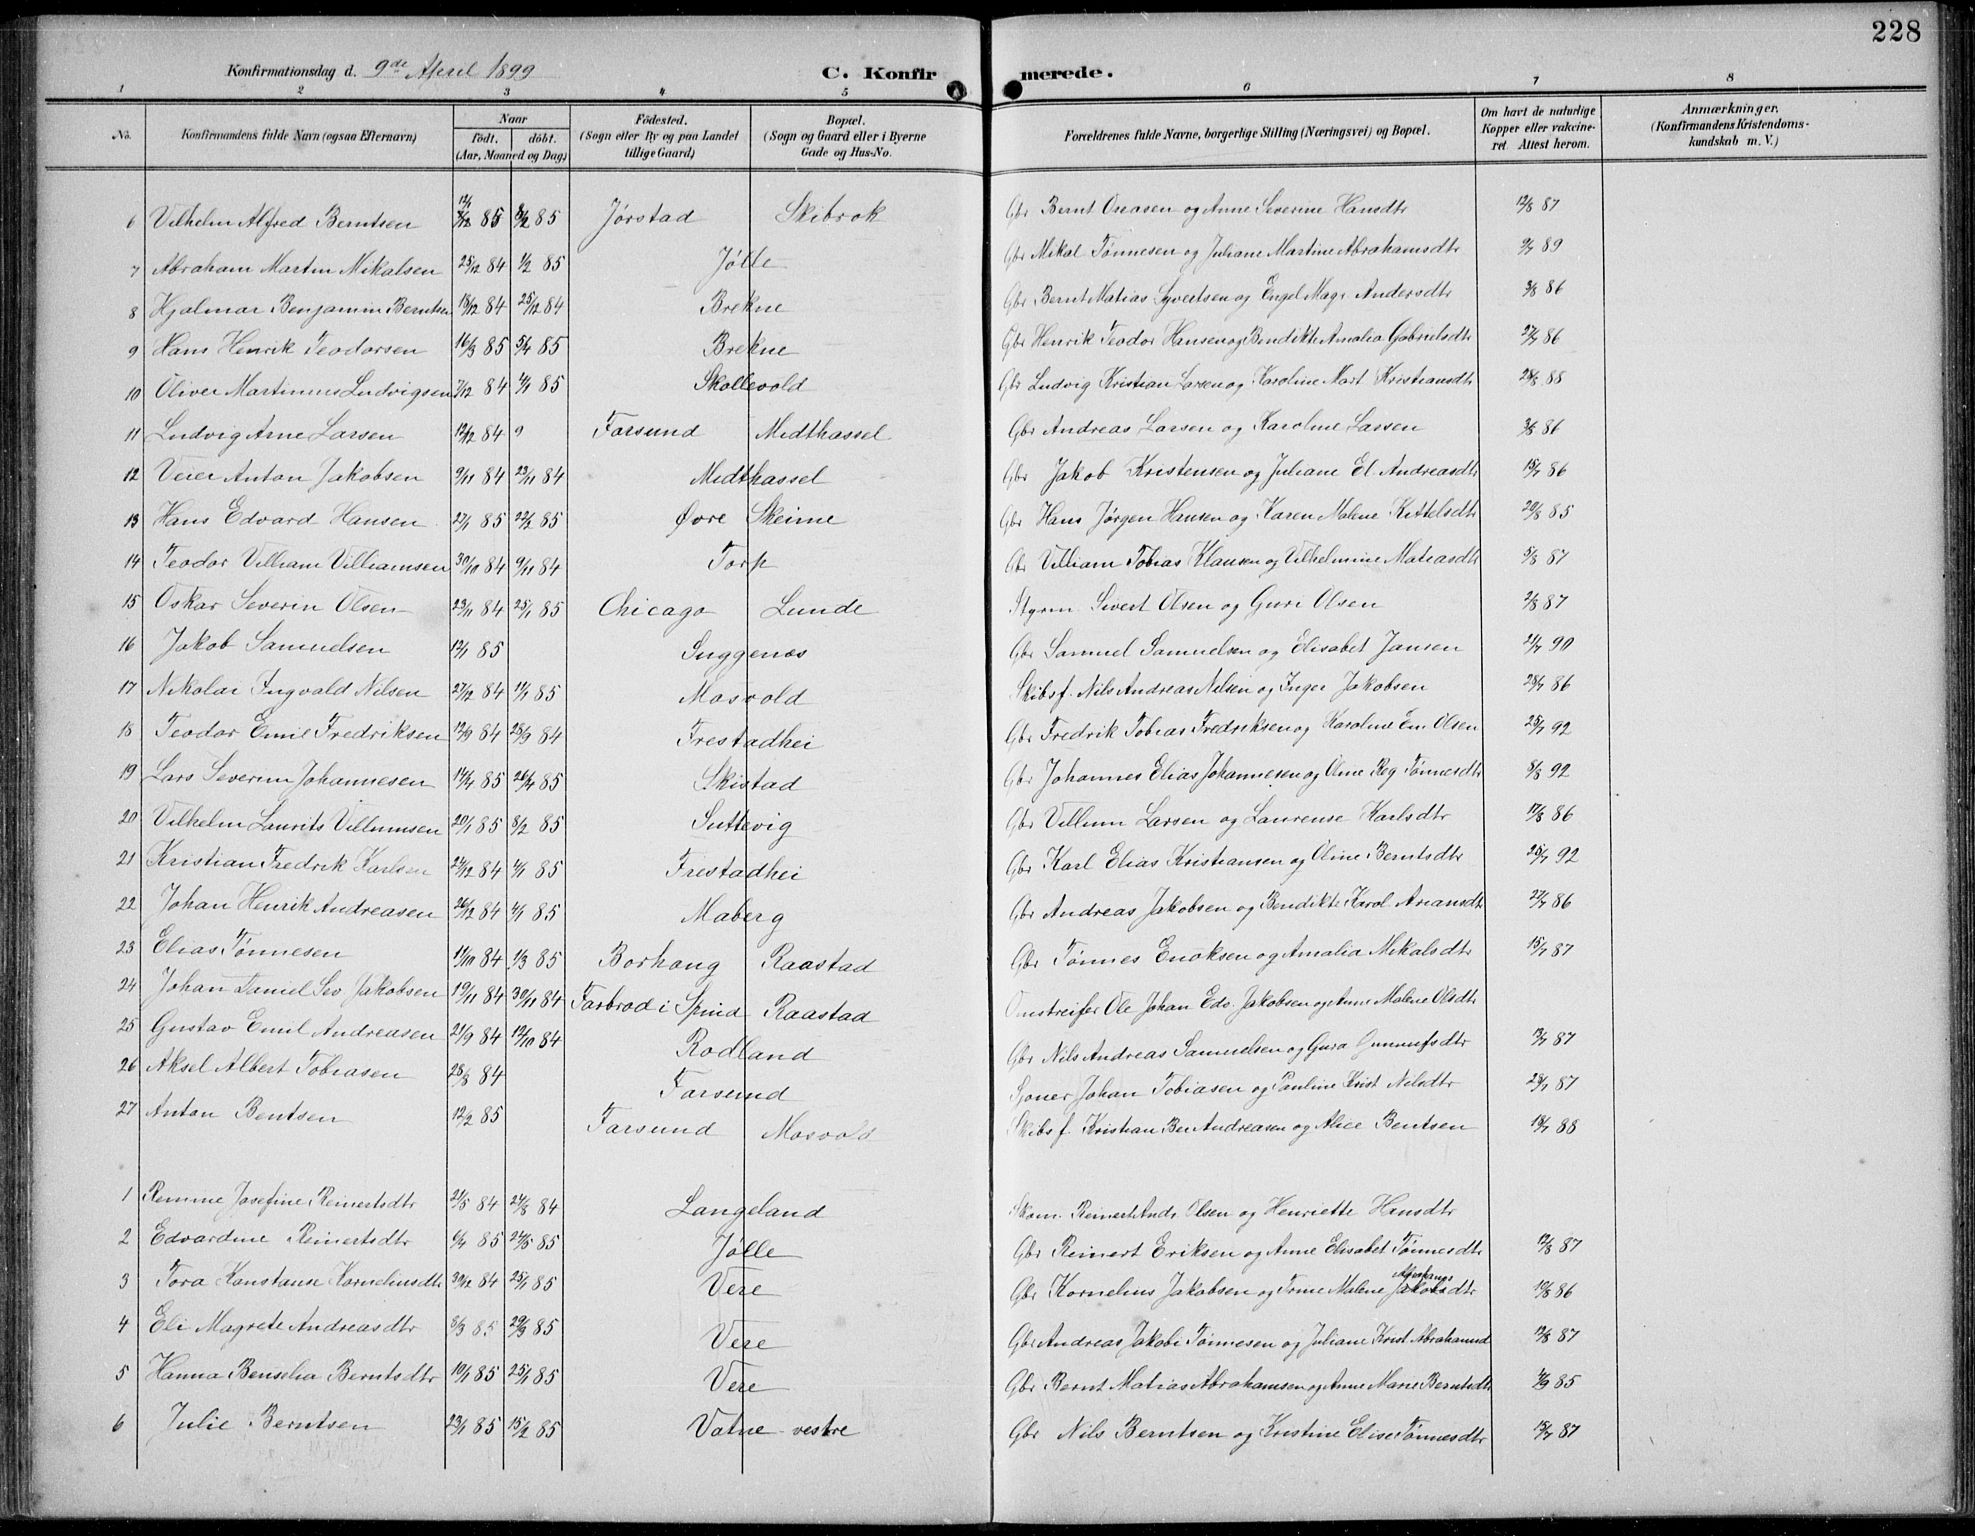 228
Konfirmationsdag d. 9de April 1899 C. Konfirmerede.
1 2 3 4 5 6 7 8
No. Konfirmandens fulde Navn (ogsaa Efternavn) Naar födt. döbt. (Aar, Maaned og Dag) Födested. (Sogn eller By og paa Landet tillige Gaard) Bopæl. (Sogn og Gaard eller i Byerne Gade og Hus-No. Forældrenes fulde Navne, borgerlige Stilling (Næringsvei) og Bopæl. Om havt de naturlige Kopper eller vakcineret. Attest herom. Anmærkninger. (Konfirmandens Kristendomskundskab m. V.)
6 Vilhelm Alfred Berntsen 85 8/2 85 Jørstad Skibrok Gbr Bernt Oreasen og Anne Severine Hansdtr 12/8 87
7 Abraham Martin Mikalsen 25/12 84 1/2 85 Jølle Gbr Mikal Tønnesen og Juliane Martine Abrahamsdtr 9/7 89
8 Hjalmar Benjamin Berntsen 18/12 84 25/12 84 Brekne Gbr Bernt Matias Syvertsen og Engel Magr Andersdtr 3/8 86
9 Hans Henrik Teodorsen 16/3 85 5/4 85 Brekne Gbr Henrik Teodor Hansen og Bendikte Amalia Gabrielsdtr 27/7 86
10 Oliver Martinius Ludvigsen 7/12 84 4/1 85 Skollevold Gbr Ludvig Kristian Larsen og Karoline Mart Kristiansdtr 28/8 88
11 Ludvig Arne Larsen 12/12 84 9 Farsund Midthassel Gbr Andreas Larsen og Karoline Larsen 3/8 86
12 Veier Anton Jakobsen 9/11 84 23/11 84 Midthassel Gbr Jakob Kristensen og Juliane El. Andreasdtr 15/7 86
13 Hans Edvard Hansen 27/1 85 22/2 85 Øvre Skeime Gbr Hans Jørgen Hansen og Karen Malene Kittelsdtr 20/8 85
14 Teodor Villiam Villiamsen 30/10 84 9/11 84 Torp Gbr Villiam Tobias Klausen og Vilhelmine Matiasdtr 5/8 87
15 Oskar Severin Olsen 23/11 84 25/1 85 Chicago Lunde Styrm Sivert Olsen og Guri Olsen 2/8 87
16 Jakob Samuelsen 12/1 85 Suggenæs Gbr Samuel Samuelsen og Elisabet Jansen 21/7 90
17 Nikolai Ingvald Nilsen 27/12 84 11/1 85 Mosvold Skibsf. Nils Andreas Nilsen og Inger Jakobsen 28/7 86
18 Teodor Emil Fredriksen 12/9 84 28/9 84 Frestadhei Gbr Fredrik Tobias Fredriksen og Karoline Em Olsen 25/7 92
19 Lars Severin Johannesen 14/4 85 26/4 85 Skistad Gbr Johannes Elias Johannesen og Oline Reg Tønnesdtr 8/8 92
20 Vilhelm Laurits Villumsen 20/1 85 8/2 85 Suttevig Gbr Villum Larsen og Laurense Karlsdtr 17/8 86
21 Kristian Fredrik Karlsen 24/12 84 4/1 85 Frestadhei Gbr Karl Elias Kristiansen og Oline Berntsdtr 25/7 92
22 Johan Henrik Andreasen 26/12 84 4/1 85 Maberg Gbr Andreas Jakobsen og Bendikte Karol Ariansdtr 27/7 86
23 Elias Tønnesen 11/10 84 1/3 85 Borhaug Raastad Gbr Tønnes Enoksen og Amalia Mikalsdtr 15/7 87
24 Johan Daniel Sev Jakobsen 19/11 84 30/11 84 Farbrod i Spind Raastad Omstreifer Ole Johan Edv. Jakobsen og Anne Malene Olsdtr
25 Gustav Emil Andreasen 21/9 84 12/10 84 Rodland Gbr Nils Andreas Samuelsen og Gura Gunnufsdtr 13/7 87
26 Aksel Albert Tobiasen 25/8 84 Farsund Sjøner Johan Tobiasen og Pauline Krist Nilsdtr 28/7 87
27 Anton Bentsen 12/2 85 Farsund Mosvold Skibsf. Kristian Ber Andreasen og Alice Bentsen 18/7 88
1 Remme Josefine Reinertsdtr 21/5 84 24/8 84 Langeland Skom. Reinert Andr Olsen og Henriette Hansdtr
2 Edvardine Reinertsdtr 6/4 85 24/5 85 Jølle Gbr Reinert Eriksen og Anne Elisabet Tønnesdtr 12/8 87
3 Tora Konstanse Korneliusdtr 30/12 84 25/1 85 Vere Gbr Kornelius Jakobsen og Trine Malene Jakobsdtr 10/8 86
4 Eli Magrete Andreasdtr 8/3 85 29/3 85 Vere Gbr Andreas Jakobi Tønnesen og Juliane Krist Abrahamsd 12/8 87
5 Hanna Benselia Berntsdtr 10/1 85 25/1 85 Vere Gbr Bernt Matias Abrahamsen og Anne Marie Berntsdtr 4/9 85
6 Julie Berntsen 23/1 85 15/2 85 Vatne vestre Gbr Nils Berntsen og Kristine Elise Tønnesdtr 15/7 87